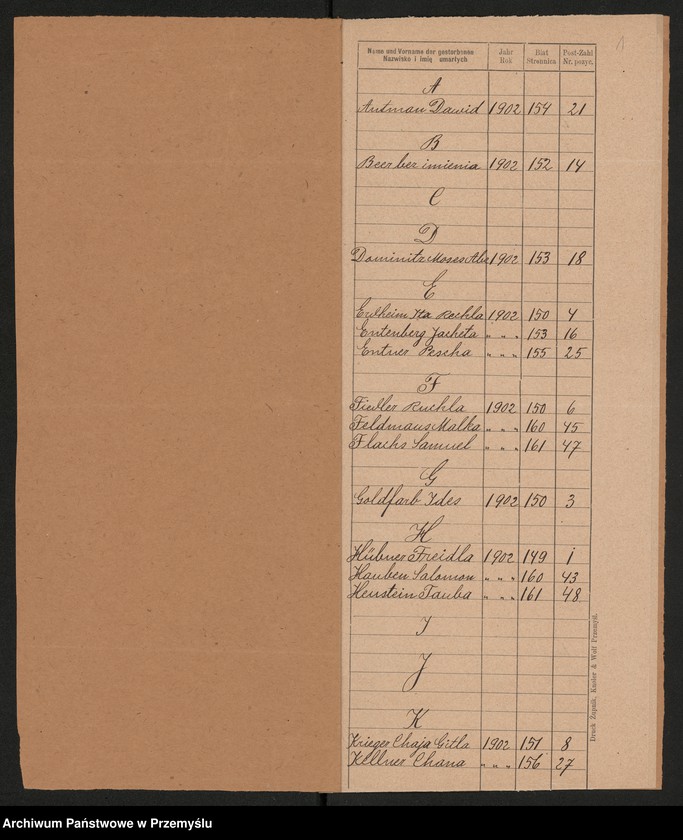 Name und Vorname der gestorbenen Jahr Blat Post-Zahl
Nazwiska i imię umarłych Rok Stronnica Nr. pozyc.
A
Autman Dawid 1902 154 21
B
Beer ber imienia 1902 152 14
C
D
Dominitz Moses Aba 1902 153 18
E
Erlheim Ita Rechla 1902 150 4
Entenberg Jacheta " " " 153 16
Entner Pescha " " " 155 25
F
Fiedler Ruchla 1902 150 6
Feldmaus Malka " " " 160 45
Flachs Samuel " " " 161 47
G
Goldfarb Ides 1902 150 3
H
Hübner Freidla 1902 149 1
Hauben Salomon " " " 160 43
Henstein Tauba " " " 161 48
I
J
K
Krieger Chaja Gitla 1902 151 8
Kellner Chana " " " 156 27
Druck Żupnik, Knoller & Wolf Przemyśl.
Archiwum Państwowe w Przemyślu